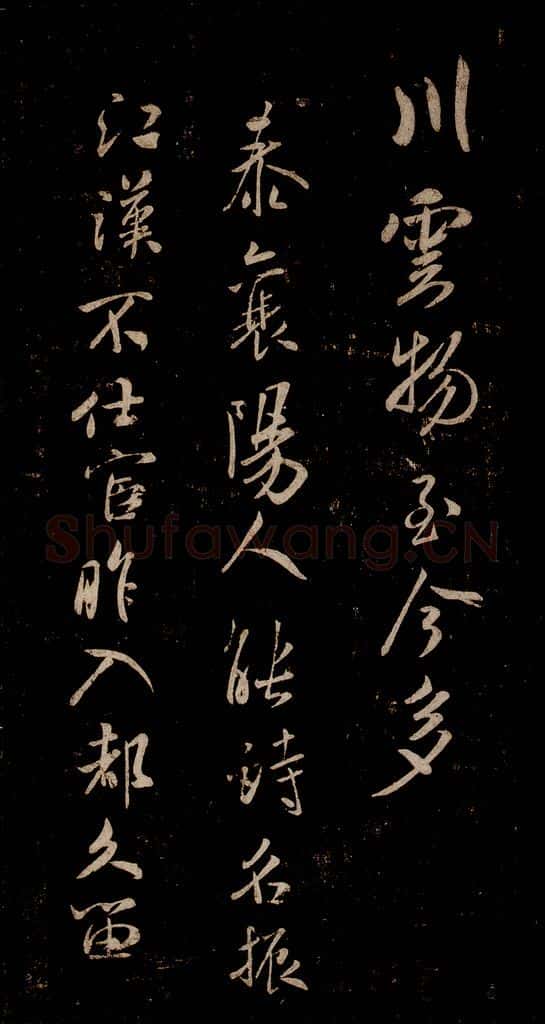 川雲物至今多
泰襄陽人能詩名振
江漢不仕宦昨入都久留
Shufawang.CN